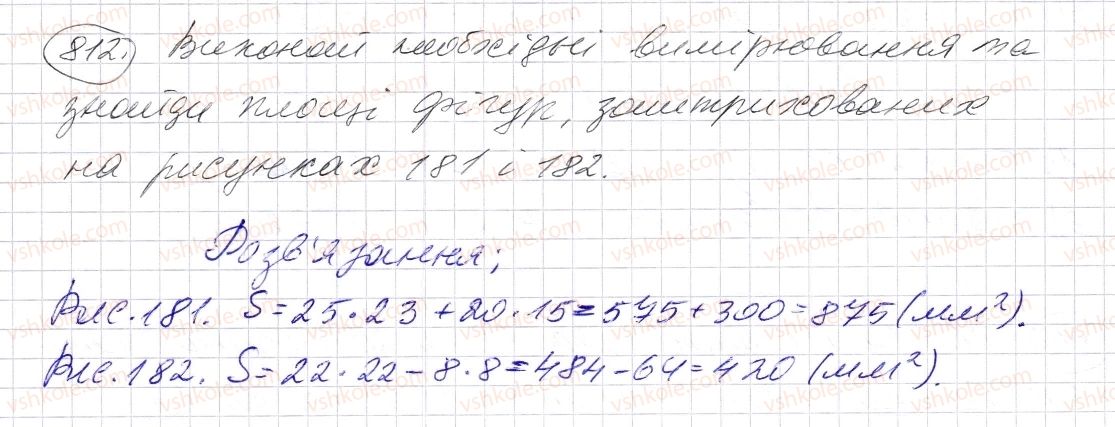 812. Виконай необхідні вимірювання та
знайди площі фігур, заштрихованих
на рисунках 181 і 182.
Розв'язання;
Рис.181. S=25·23+20·15=575+300=875(мм²).
Рис.182. S=22·22-8·8=484-64=420 (мм²).